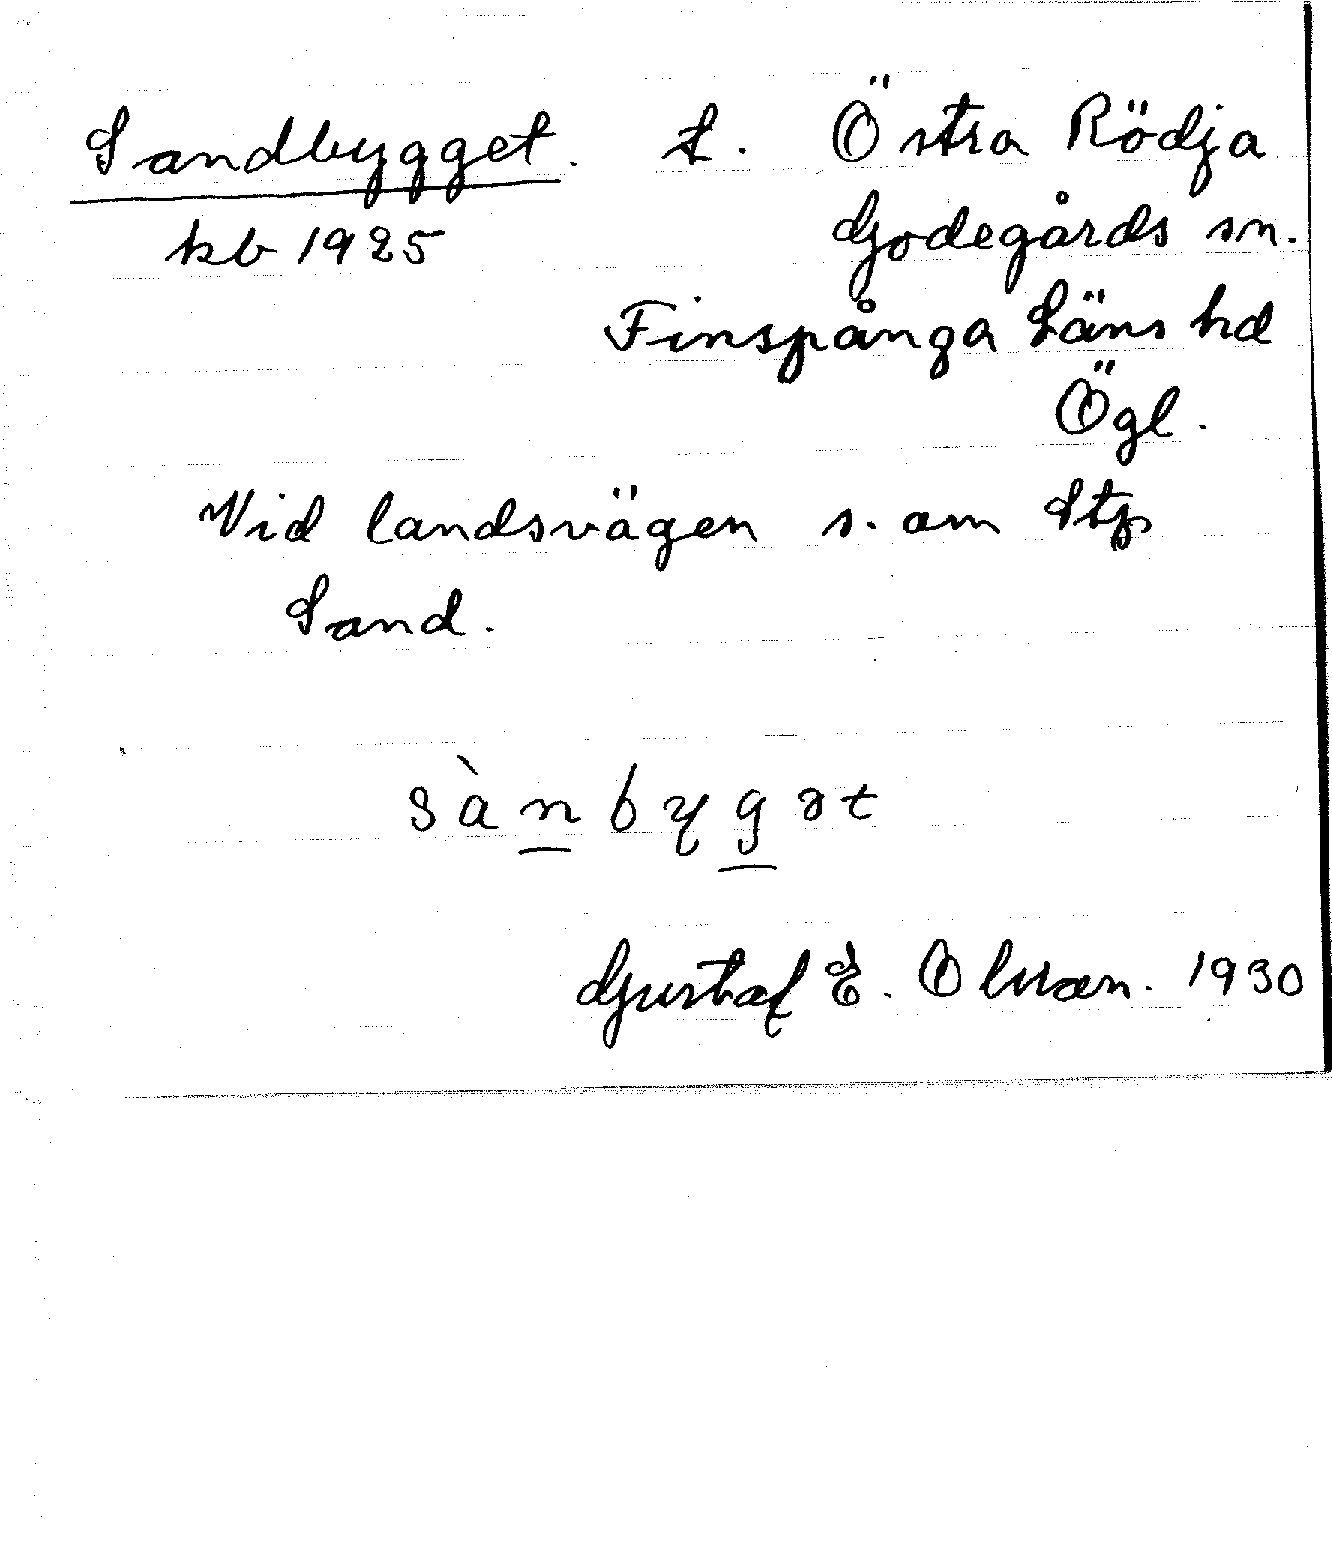 Sandbygget. t. Östra Rödja
kb 1925 Godegårds sn.
Finspånga Läns hd
Ögl.
Vid landsvägen s. om Stp
Sand.
sànbygət
Gustaf E. Olsson. 1930